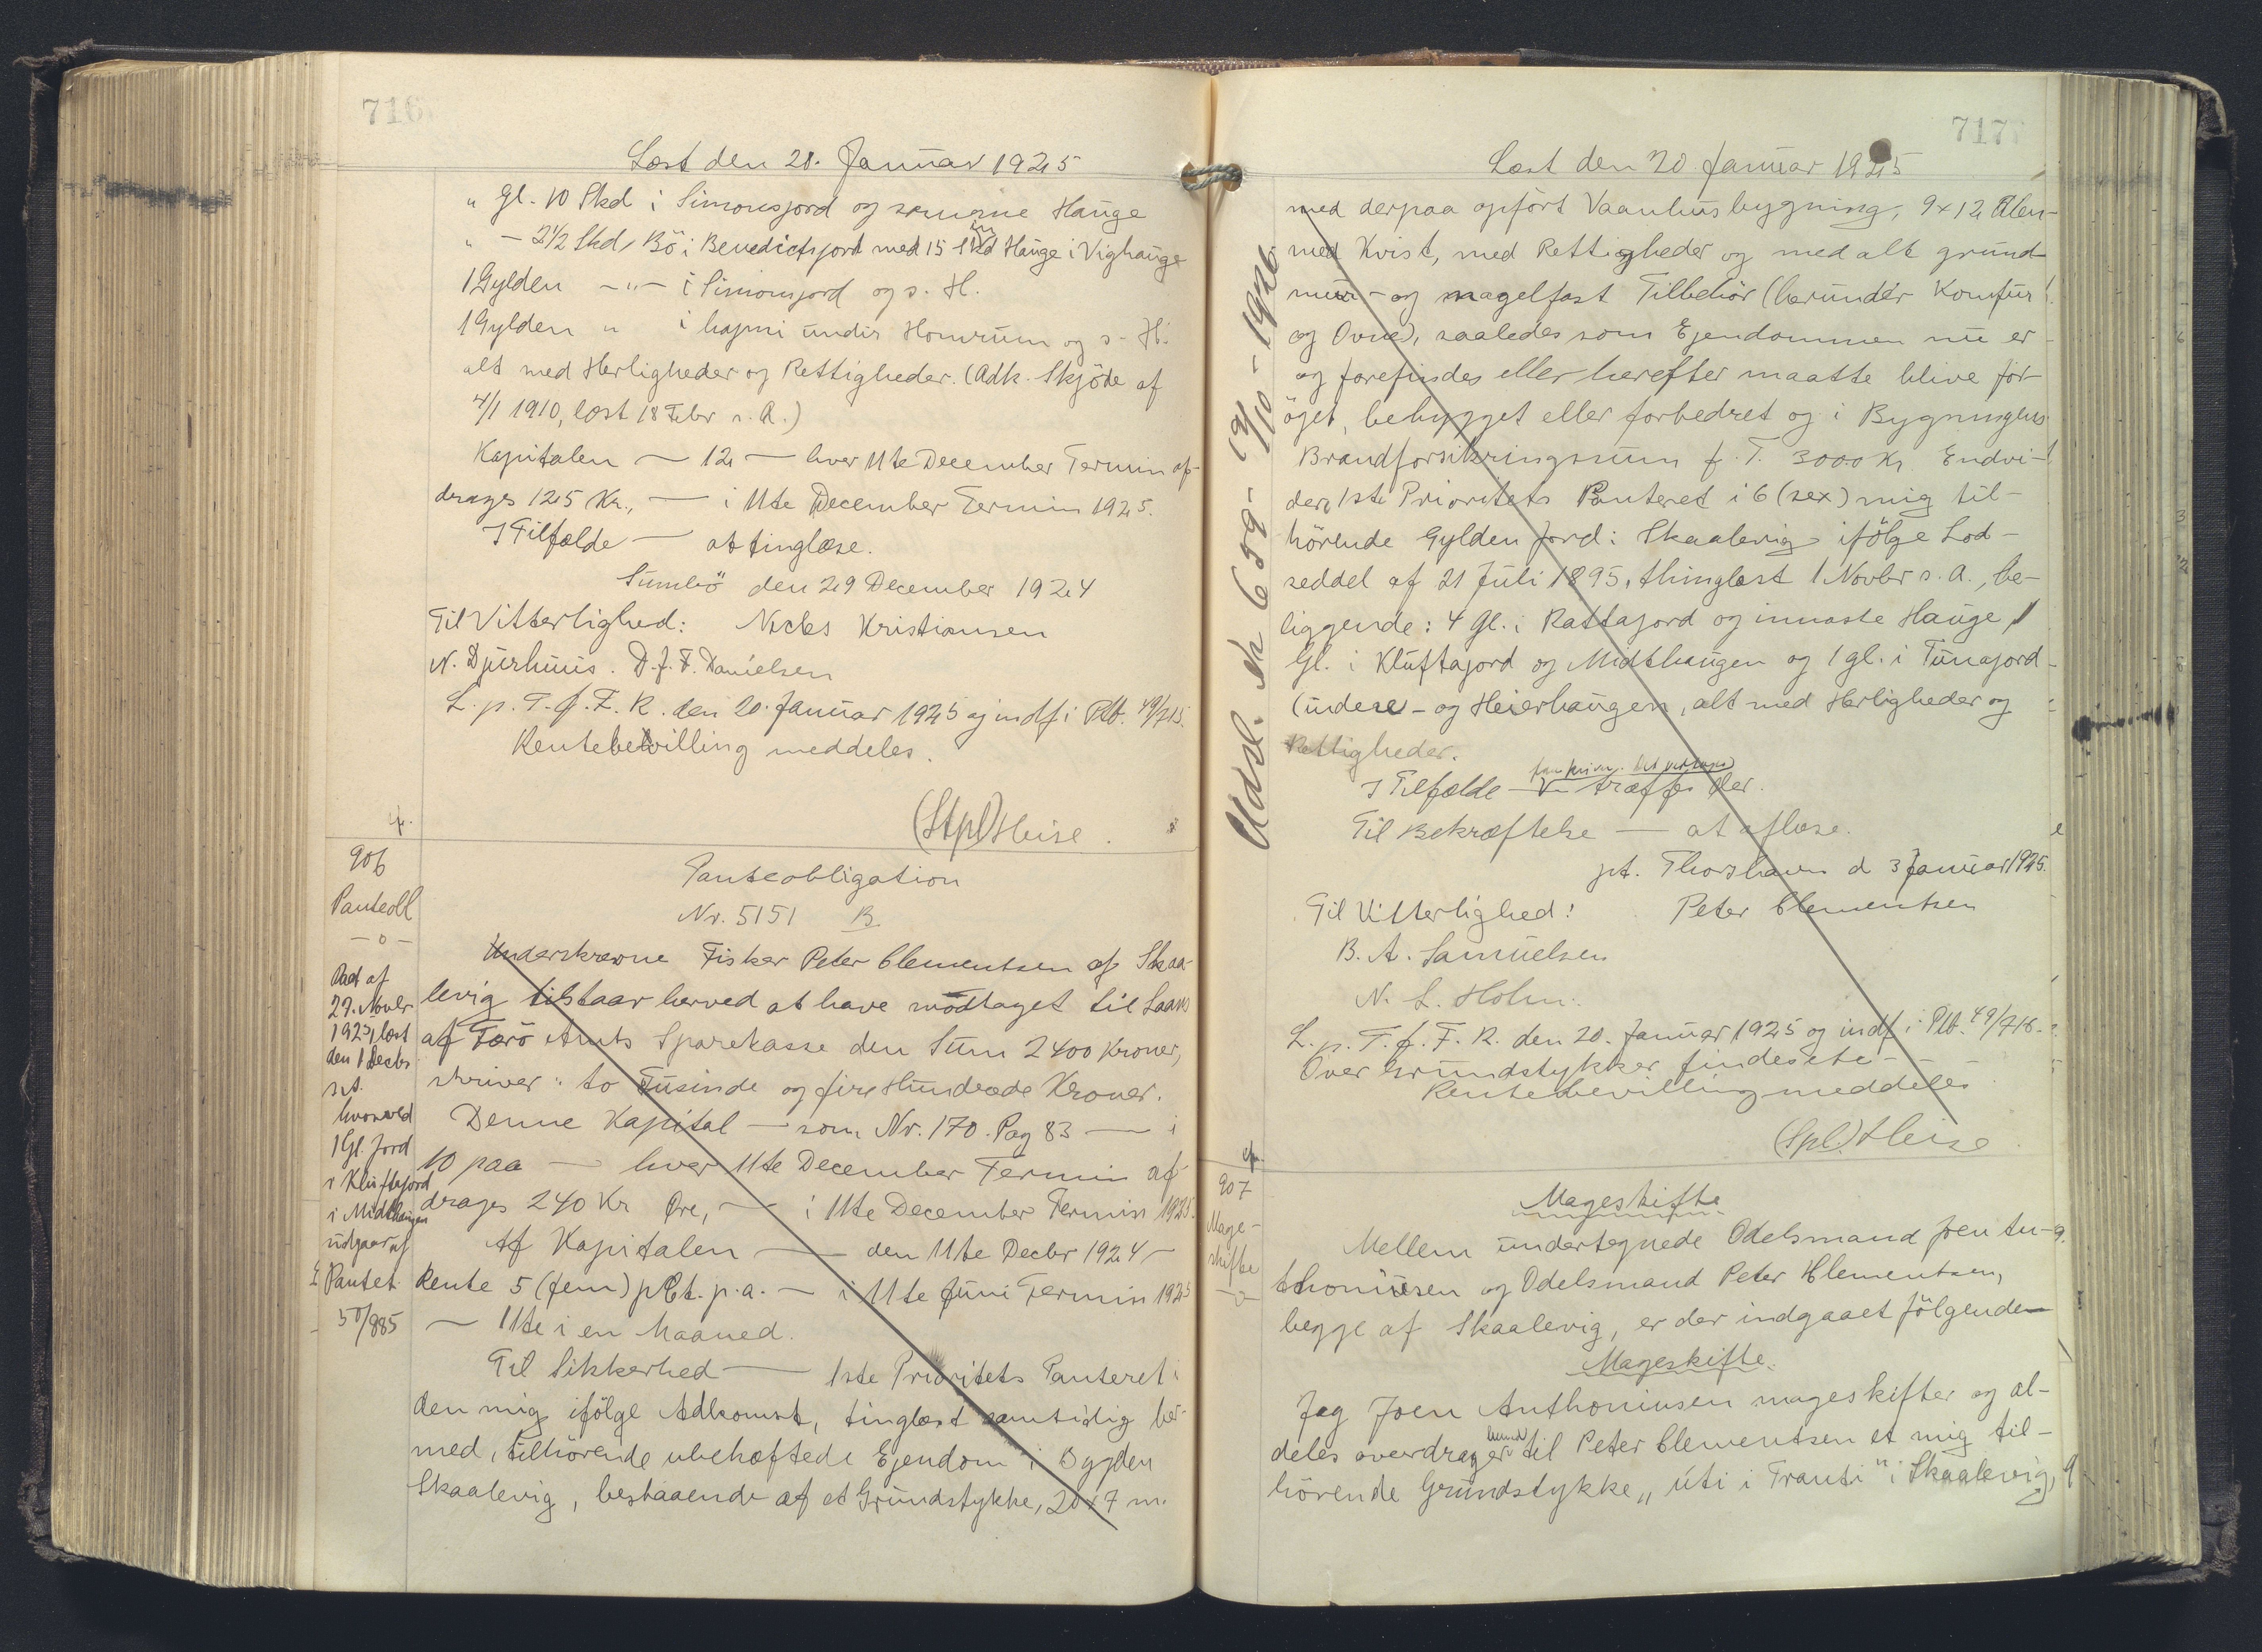 716
Læst den 20. Januar 1925
" gl. 10 Skd i Simonsjord og samme Hauge
" - 2½ Skd, Bö i Benedictsjord med 15 Skd Hauge i Vighauge
1 Gylden -"- i Simonsjord og s. H.
1 Gylden " i undir Homrum og s. H.
alt med Herligheder og Rettigheder. (Adk. Skjöde af
4/1 1910, læst 18 Febr s. A.)
Kapitalen - 12 - hver 11te December Termin af-
drages 125 Kr., - i 11te December Termin 1925.
I Tilfælde - at tinglæse.
Sumbö den 29 December 1924
Til Vitterlighed: Kristiansen
N. Djurhuus. D. J. F. Danielsen
L. p. T. f. F. R. den 20. Januar 1925 og indf i Ptb. 49/715.
Rentebevilling meddeles.
(Stpl) Heise.
906
Panteobl
-o-
Panteobligation
Nr. 5151 B
Underskrevne Fisker Peter Clementsen af Skaa-
levig tilstaar herved at have modtaget til Laans
af Færö Amts Sparekasse den Sum 2400 Kroner,
skriver: to Tusinde og fire Hundrede Kroner.
Denne Kapital - som Nr. 170. Pag 83 - i
10 paa - hver 11te December Termin af-
drages 240 Kr Øre, - i 11te December Termin 1925.
Af Kapitalen - den 11te Decbr 1924 -
Rente 5 (fem) pCt. p.a. - i 11te Juni Termin 1925
- 11te i en Maaned.
Til Sikkerhed - 1ste Prioritets Panteret i
den mig ifölge Adkomst, tinglæst samtidig her-
med, tilhörende ubehæftede Ejendom i Bygden
Skaalevig, bestaaende af et Grundstykke, 20x7 m.
Paat af
29. Novbr
1925, læst
den 1 Decbr
s.A.
hvorved
1 Gl. Jord
i Kluftajord
i Midthaugen
udgaar af
Pantet.
50/885
717
Læst den 20. Januar 1925
med derpaa opfört Vaanhusbygning, 9x12 Alen
med Kvist, med Rettigheder og med alt grund-
mur- og nagelfast Tilbehör (herunder Komfur
og Ovne), saaledes som Ejendommen nu er
og forefindes eller herefter maatte blive for-
öget, bebygget eller forbedret og i Bygningens
Brandforsikringssum f. T. 3000 Kr Endvi-
dere 1ste Prioritets Panteret i 6 (sex) mig til-
hörende Gylden Jord i Skaalevig ifölge Lod-
seddel af 21 Juli 1895, thinglæst 1 Novbr s. A., be-
liggende: 4 Gl. i Rattajord og innaste Hauge, 1
Gl. i Kluftajord og Midthaugen og 1 gl. i Tunajord
(indere- og Heierhaugen, alt med Herligheder og
Rettigheder.
I Tilfælde - træffes der.
Til Bekræftelse - at aflæse.
pt. Thorshavn d 3 Januar 1925.
Til Vitterlighed: Peter Clementsen
B. A. Samuelsen
N. L. Holm.
L. p. T. f. F. R. den 20. Januar 1925 og indf i Ptb. 49/716.
Over Grundstykket findes etc -
Rentebevilling meddeles
(Spl.) Heise.
Udsl. Nr 659 - 19/10 - 1926.
907
Mage-
skifte
-o-
Mageskifte
Mellem undertegnede Odelsmand Joen An-
thoniusen og Odelsmand Peter Clementsen,
begge af Skaalevig, er der indgaaet fölgende
Mageskifte.
Jeg Joen Anthoniusen mageskifter og al-
deles overdrager hermed til Peter Clementsen et mig til-
hörende Grundstykke „úti i Tranti" i Skaalevig,